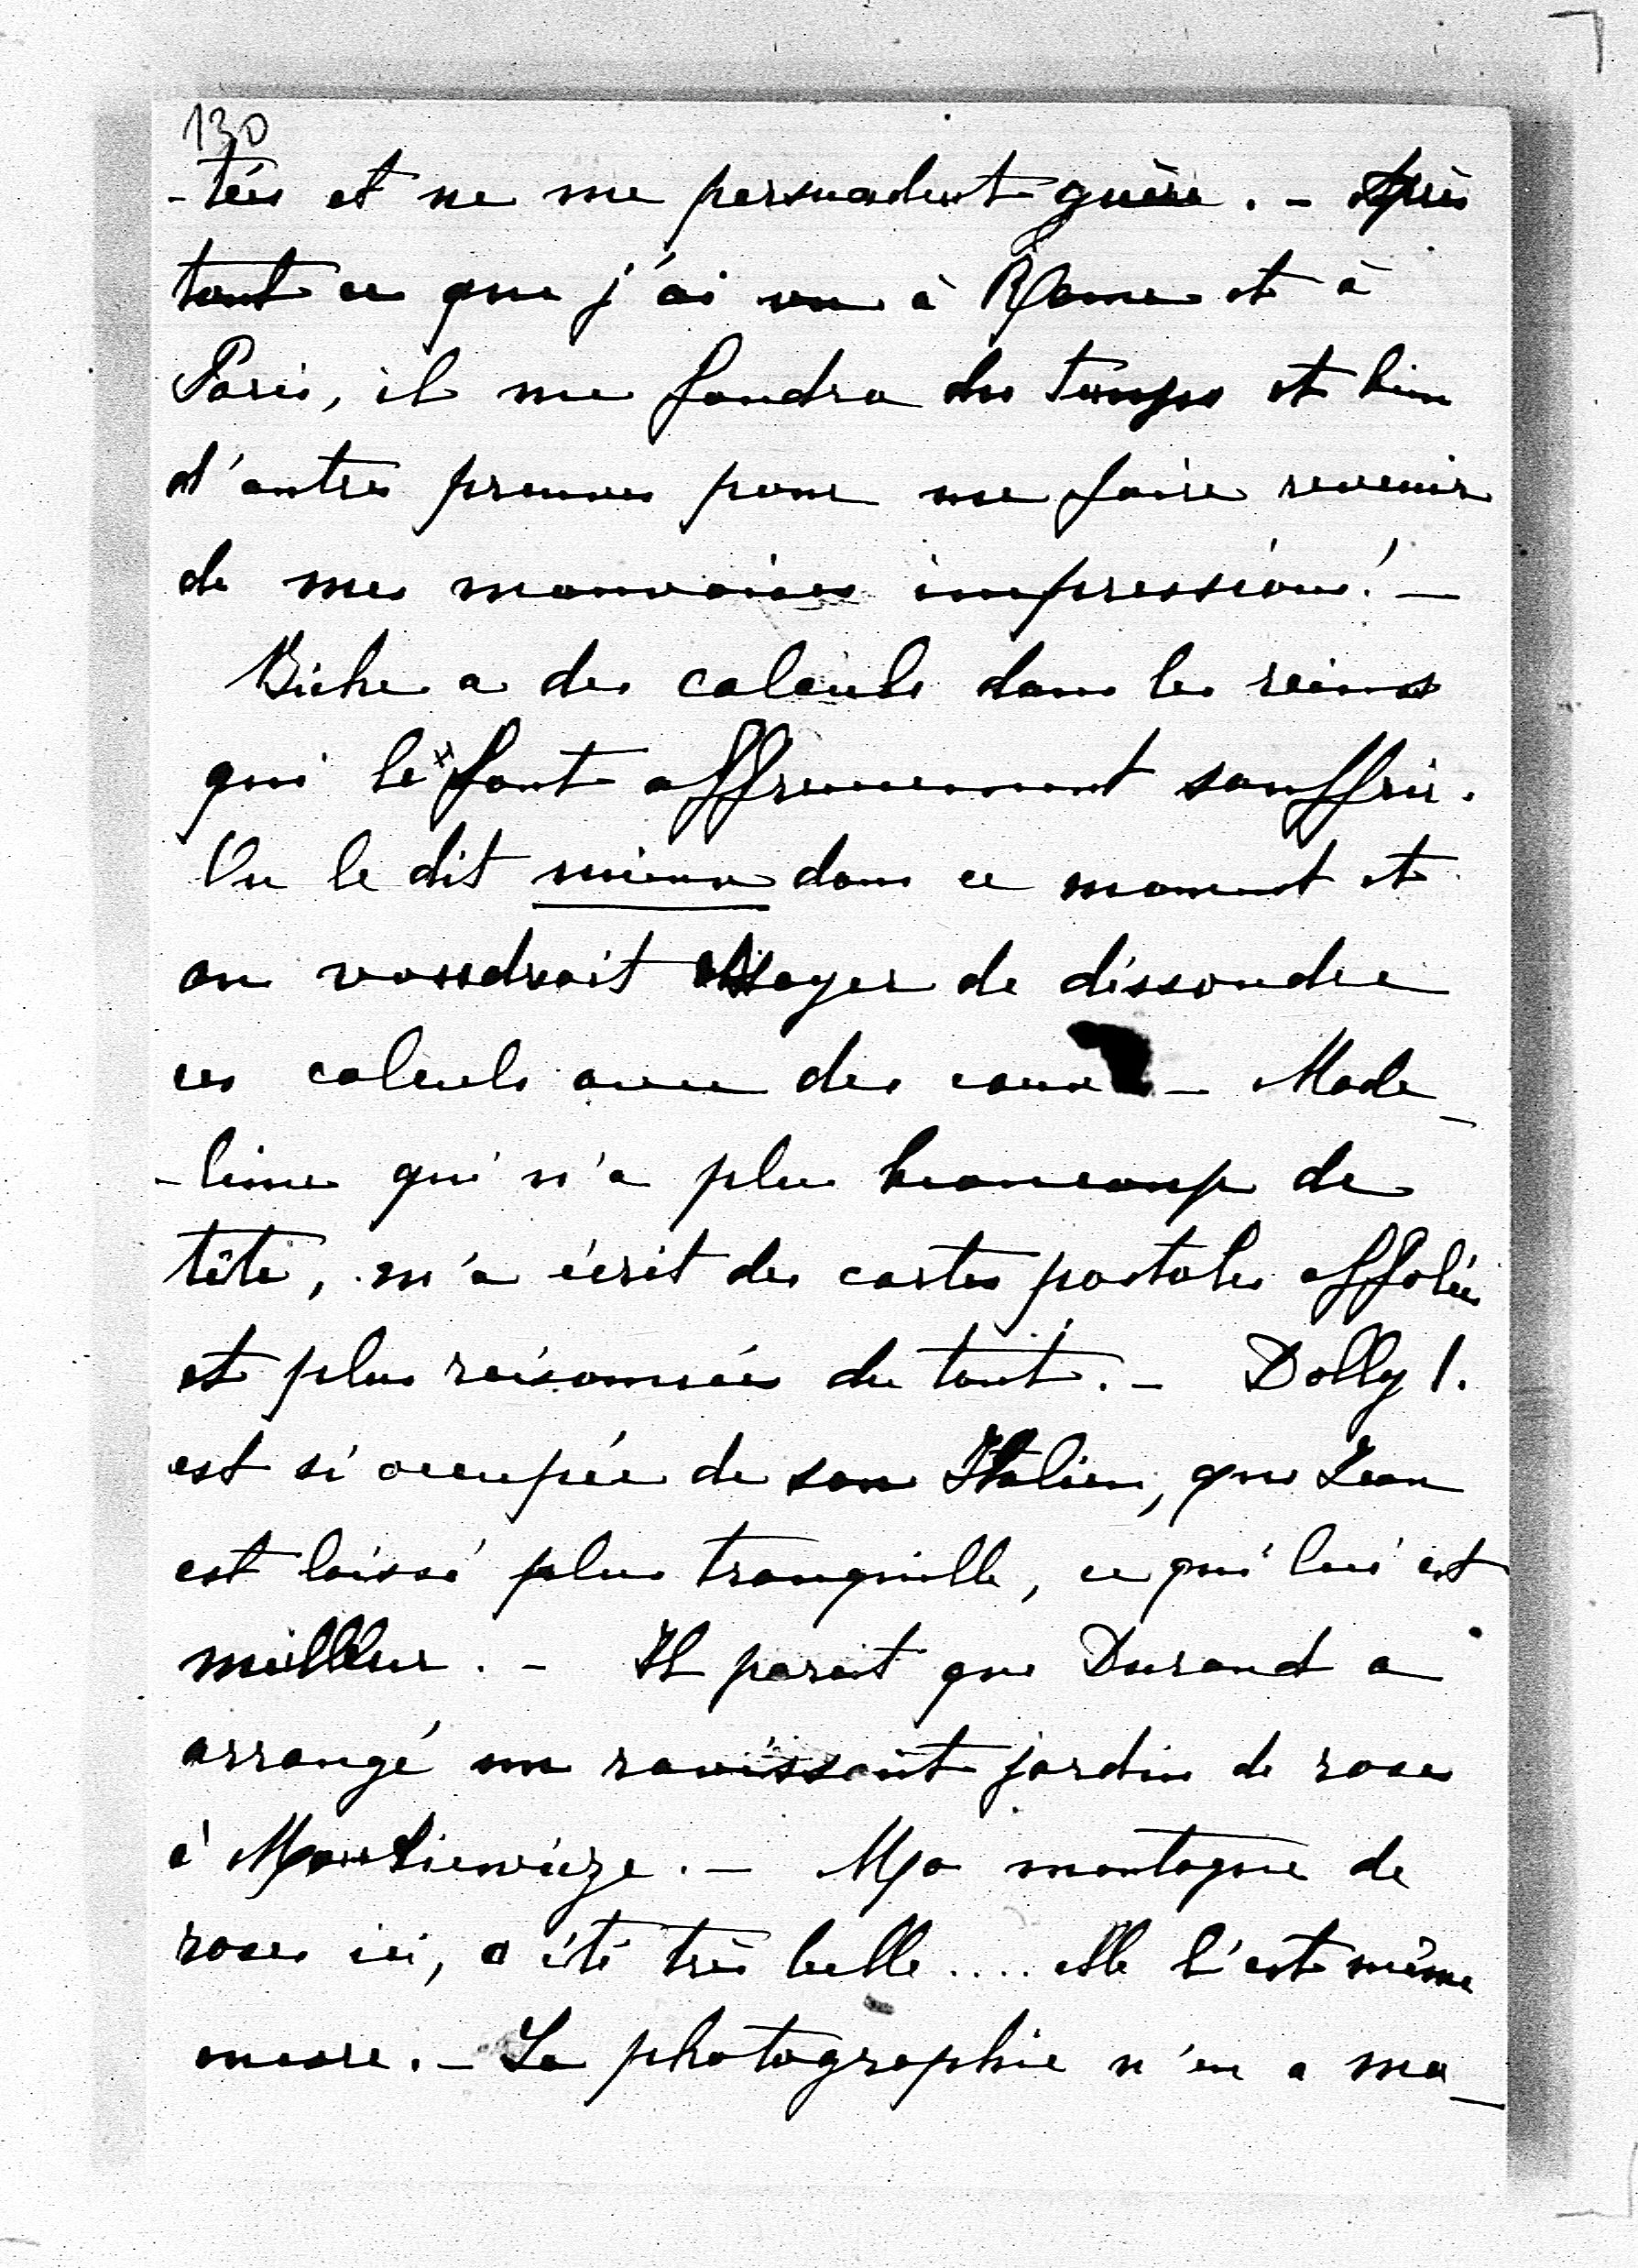 130
-tées et ne me persuadent guère. - Après
tout ce que j'ai vu à Rome et à
Paris, il me faudra du temps et bien
d'autres preuves pour me faire revenir
de mes mauvaises impressions! -
Biche a des calculs dans les reins
qui le font affreusement souffrir.
On le dit mieux dans ce moment et
on voudrait essayer de dissoudre
ces calculs avec des eaux - Made_
-leine qui n'a plus beaucoup de
tête, m'a écrit des cartes postales affolées
et plus raisonnées du tout. - Dolly !.
est si occupée de son Italien, que Jean
est laissé plus tranquille, ce qui lui est
meilleur. - Il parait que Durand a
arrangé un ravissant jardin de roses
à . - Ma montagne de
roses ici, a été très belle .... elle l'est même
encore. - La photographie n'en a ma_